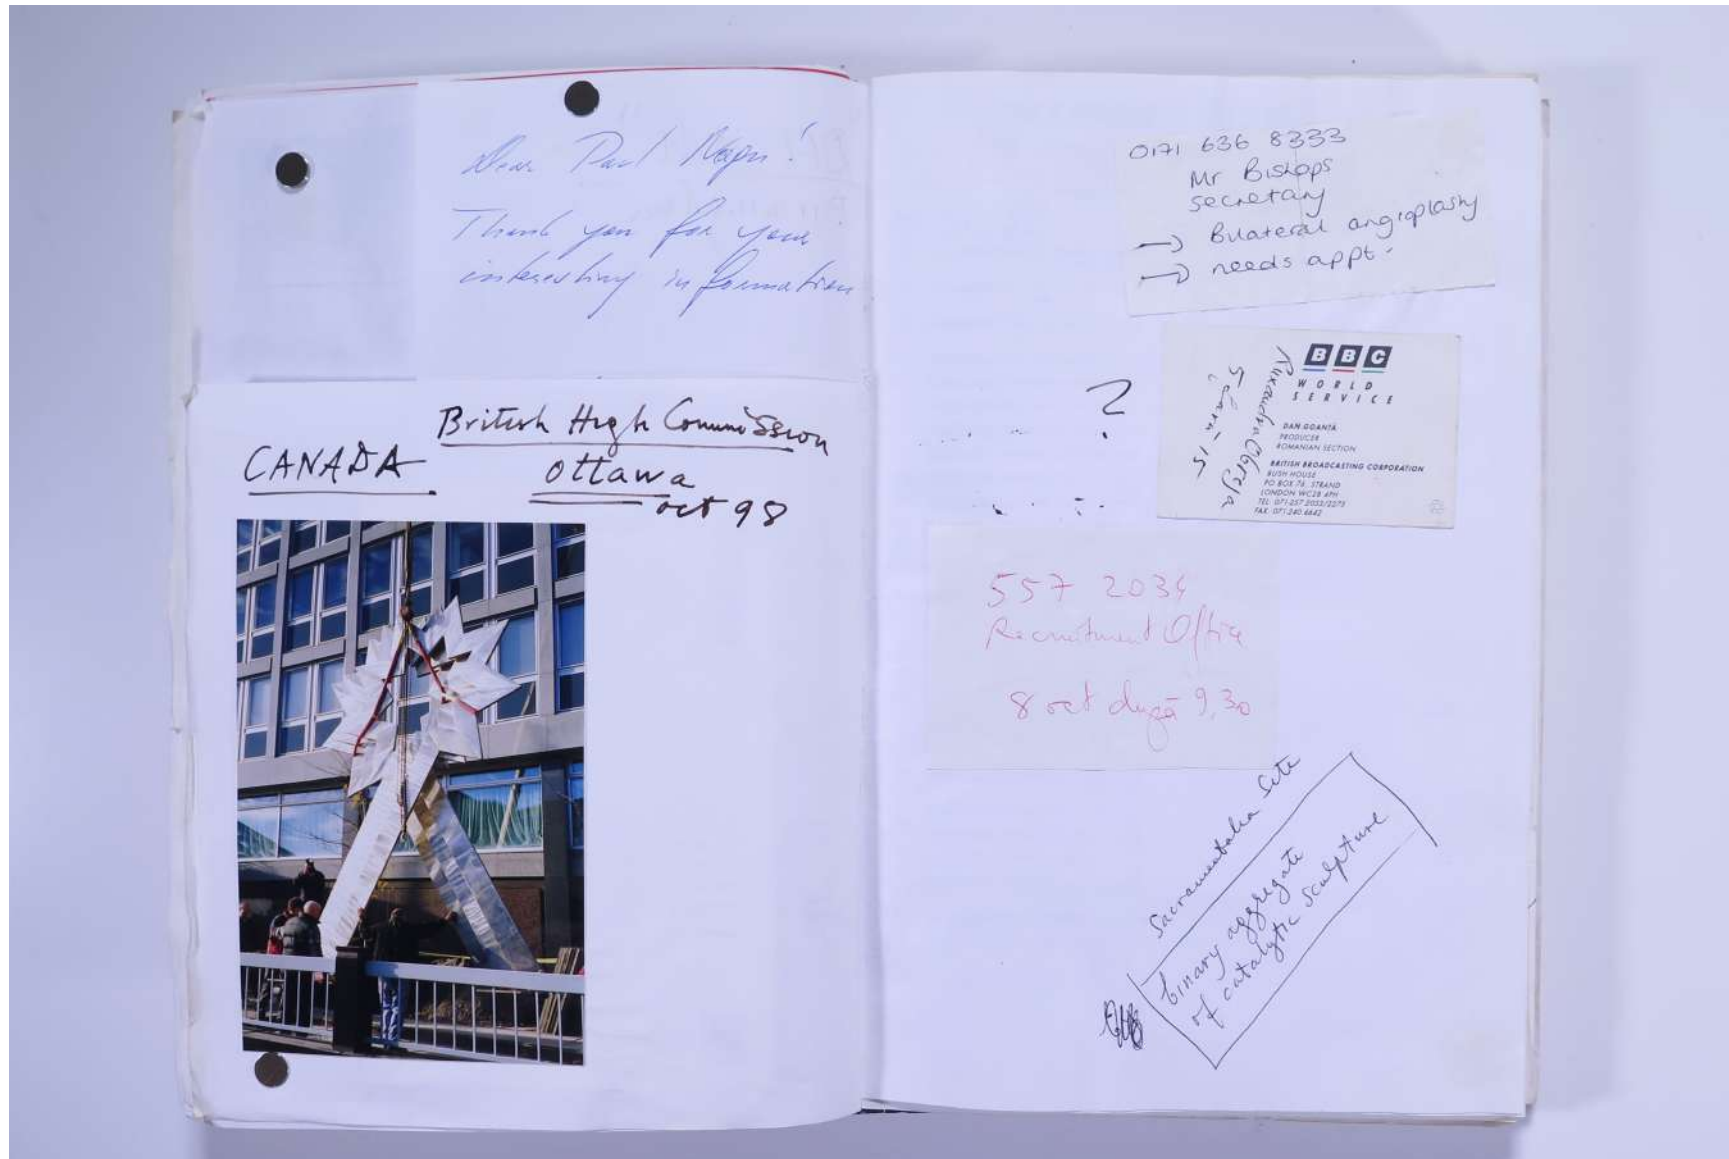 Dear Paul Neagu!
Thank you for your
interesting information
British High Commission
CANADA
Ottawa
oct 98
0171 636 8333
Mr Bishops
secretary
→ Bilateral angioplasty
→ needs appt.
?
BBC
WORLD
SERVICE
DAN GOANTĂ
PRODUCER
ROMANIAN SECTION
BRITISH BROADCASTING CORPORATION
BUSH HOUSE
PO BOX 76, STRAND
LONDON WC2B 4PH
TEL: 071-257 2033/2275
FAX: 071-240 4642
Ruxandra Obreja
15
557 2034
Recruitment Office
8 oct după 9,30
Sacramentalia Site
binary aggregate
of catalytic sculpture